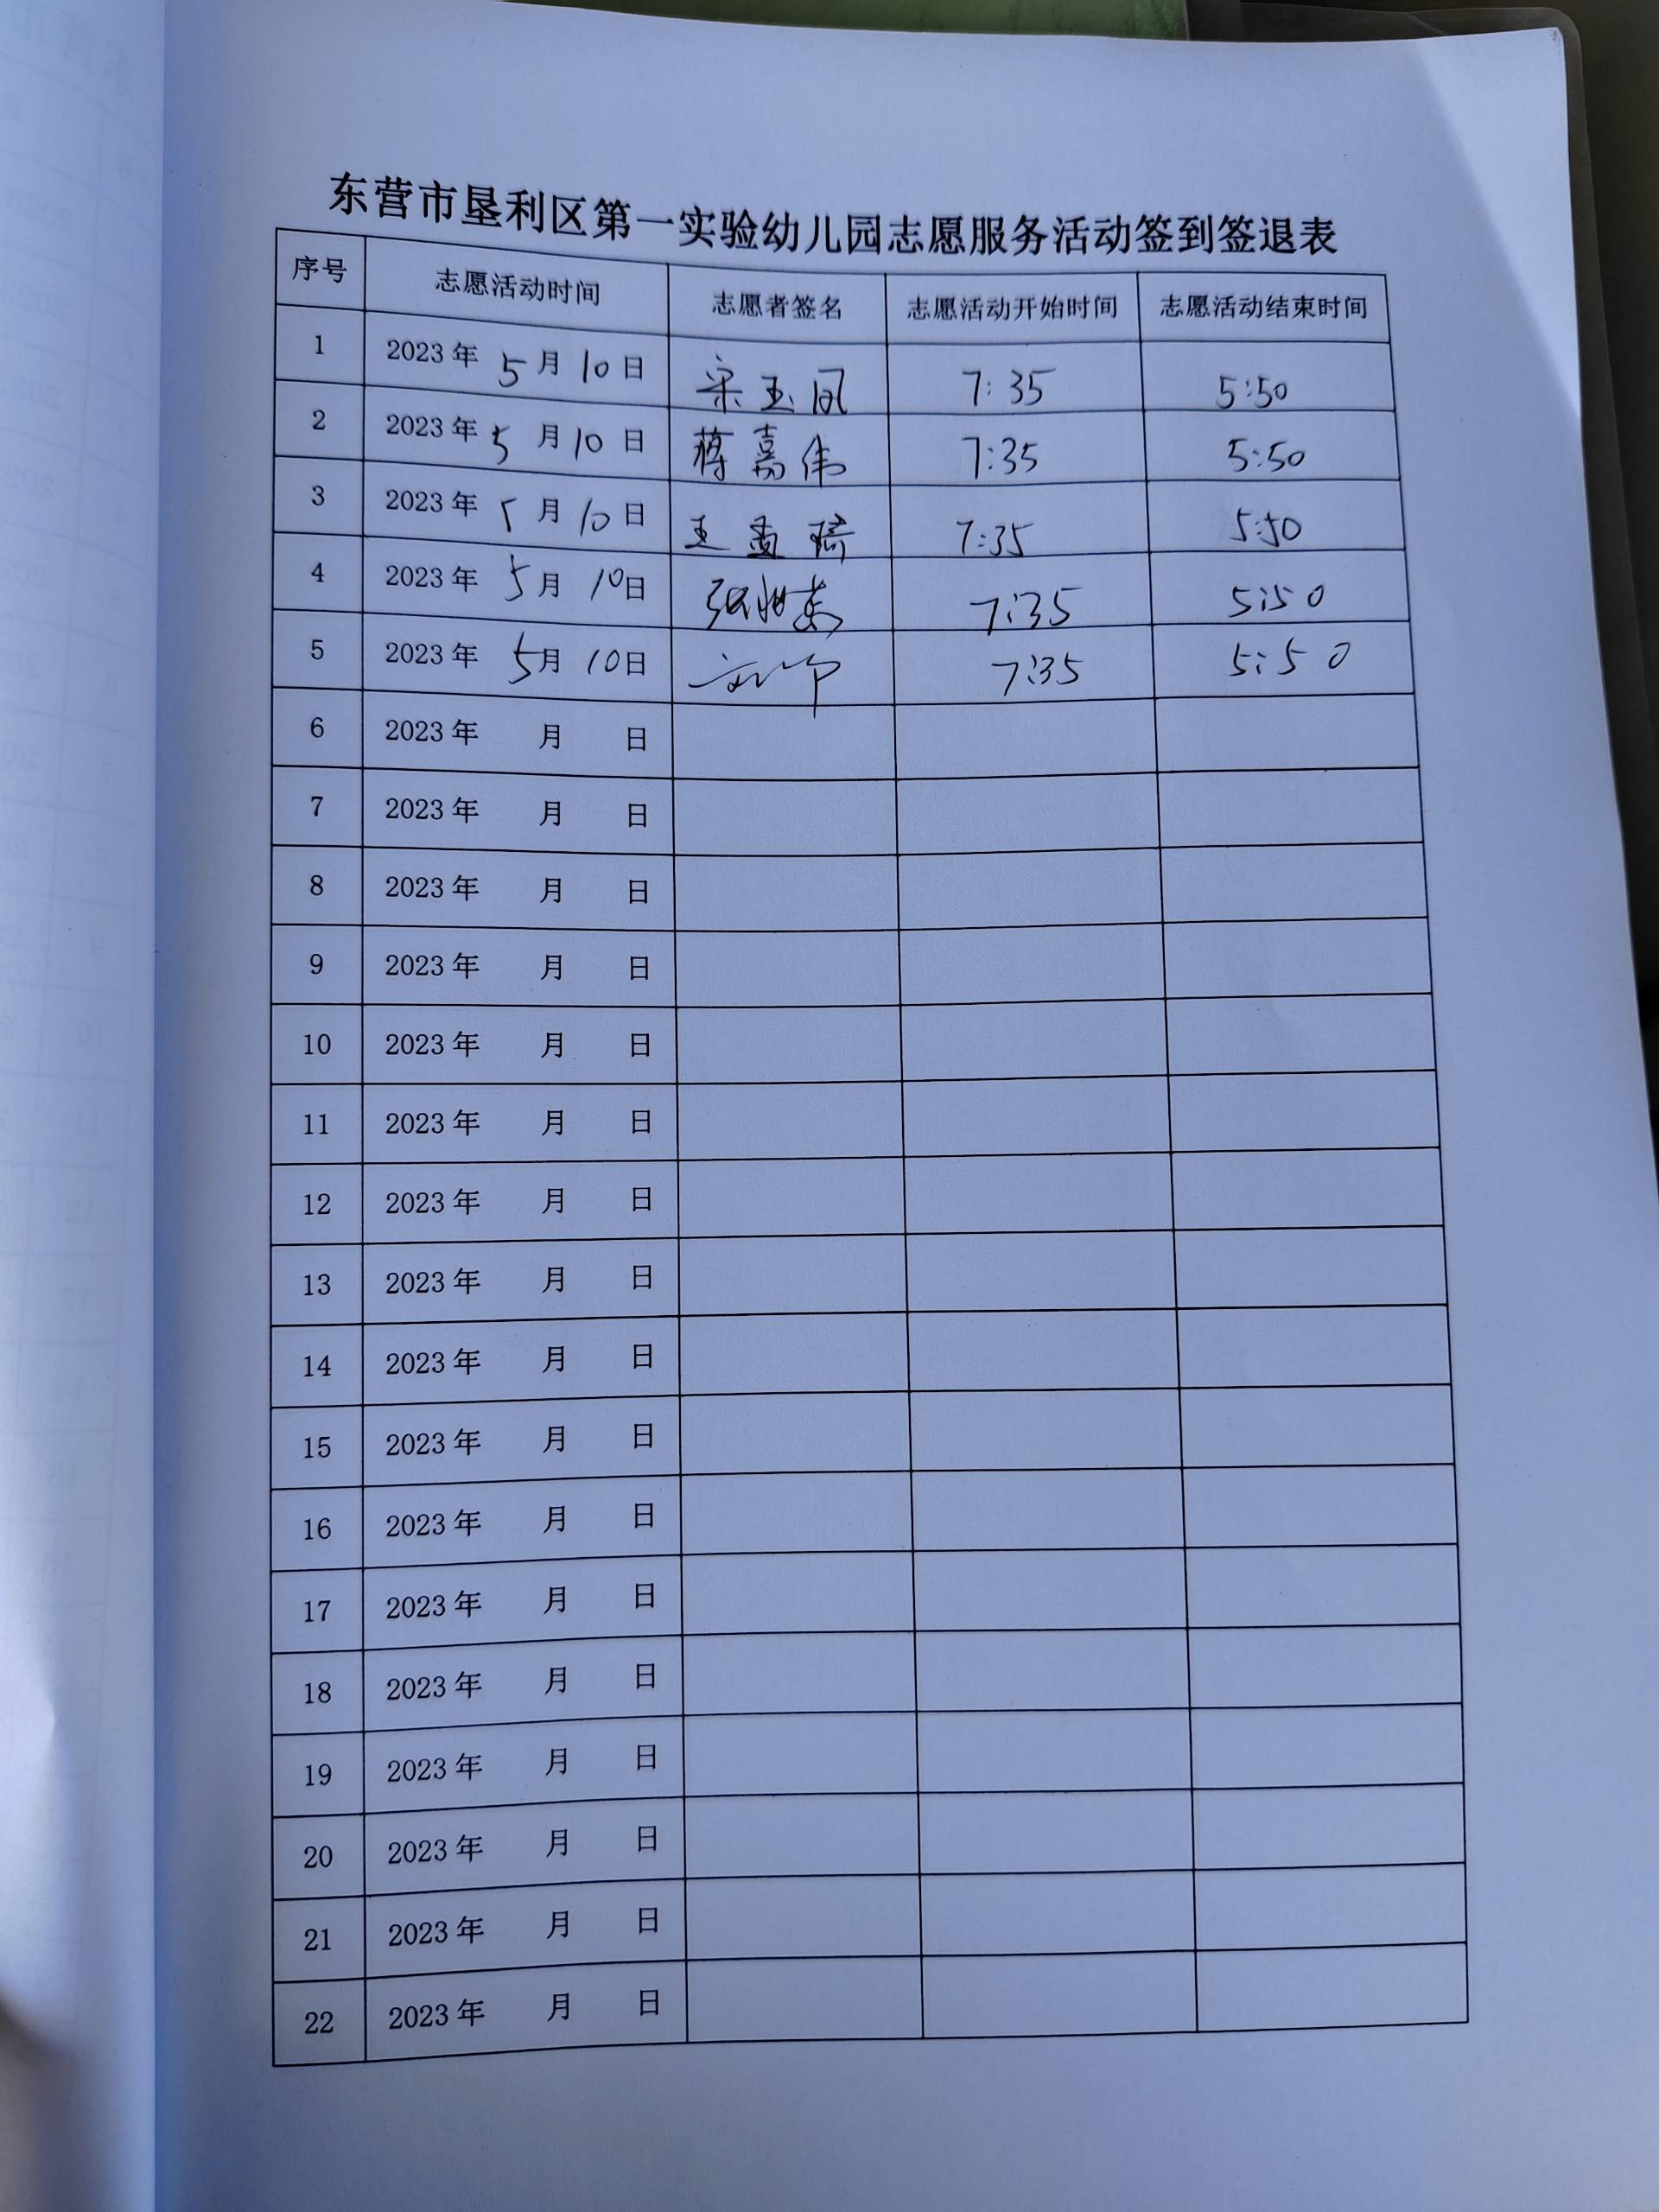 东营市垦利区第一实验幼儿园志愿服务活动签到签退表
序号 志愿活动时间 志愿者签名 志愿活动开始时间 志愿活动结束时间
1 2023年 5月10日 宋玉凤 7:35 5:50
2 2023年 5月10日 蒋嘉伟 7:35 5:50
3 2023年 5月10日 王孟瑶 7:35 5:50
4 2023年 5月10日 张 7:35 5:50
5 2023年 5月10日 7:35 5:50
6 2023年 月 日
7 2023年 月 日
8 2023年 月 日
9 2023年 月 日
10 2023年 月 日
11 2023年 月 日
12 2023年 月 日
13 2023年 月 日
14 2023年 月 日
15 2023年 月 日
16 2023年 月 日
17 2023年 月 日
18 2023年 月 日
19 2023年 月 日
20 2023年 月 日
21 2023年 月 日
22 2023年 月 日